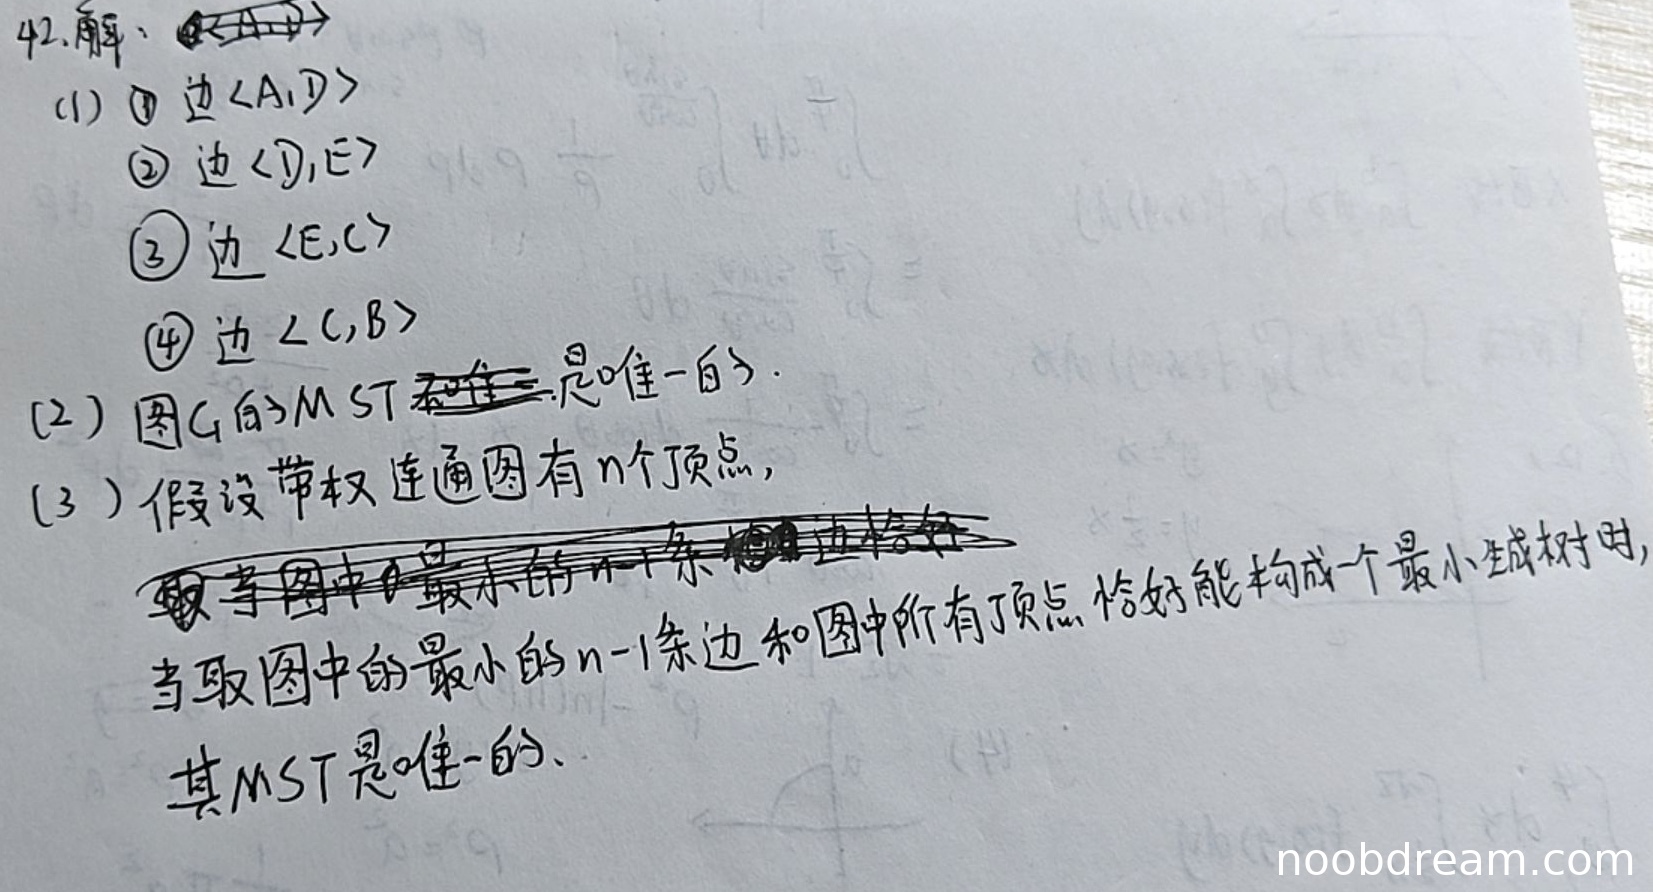 42.解：
(1) ① 边<A,D>
② 边<D,E>
③ 边<E,C>
④ 边<C,B>
(2) 图G的MST 是唯一的.
(3) 假设带权连通图有n个顶点,
当图中 最小的n-1条 边恰好
当取图中的最小的n-1条边和图中所有顶点恰好能构成一个最小生成树时,
其MST是唯一的、
noobdream.com